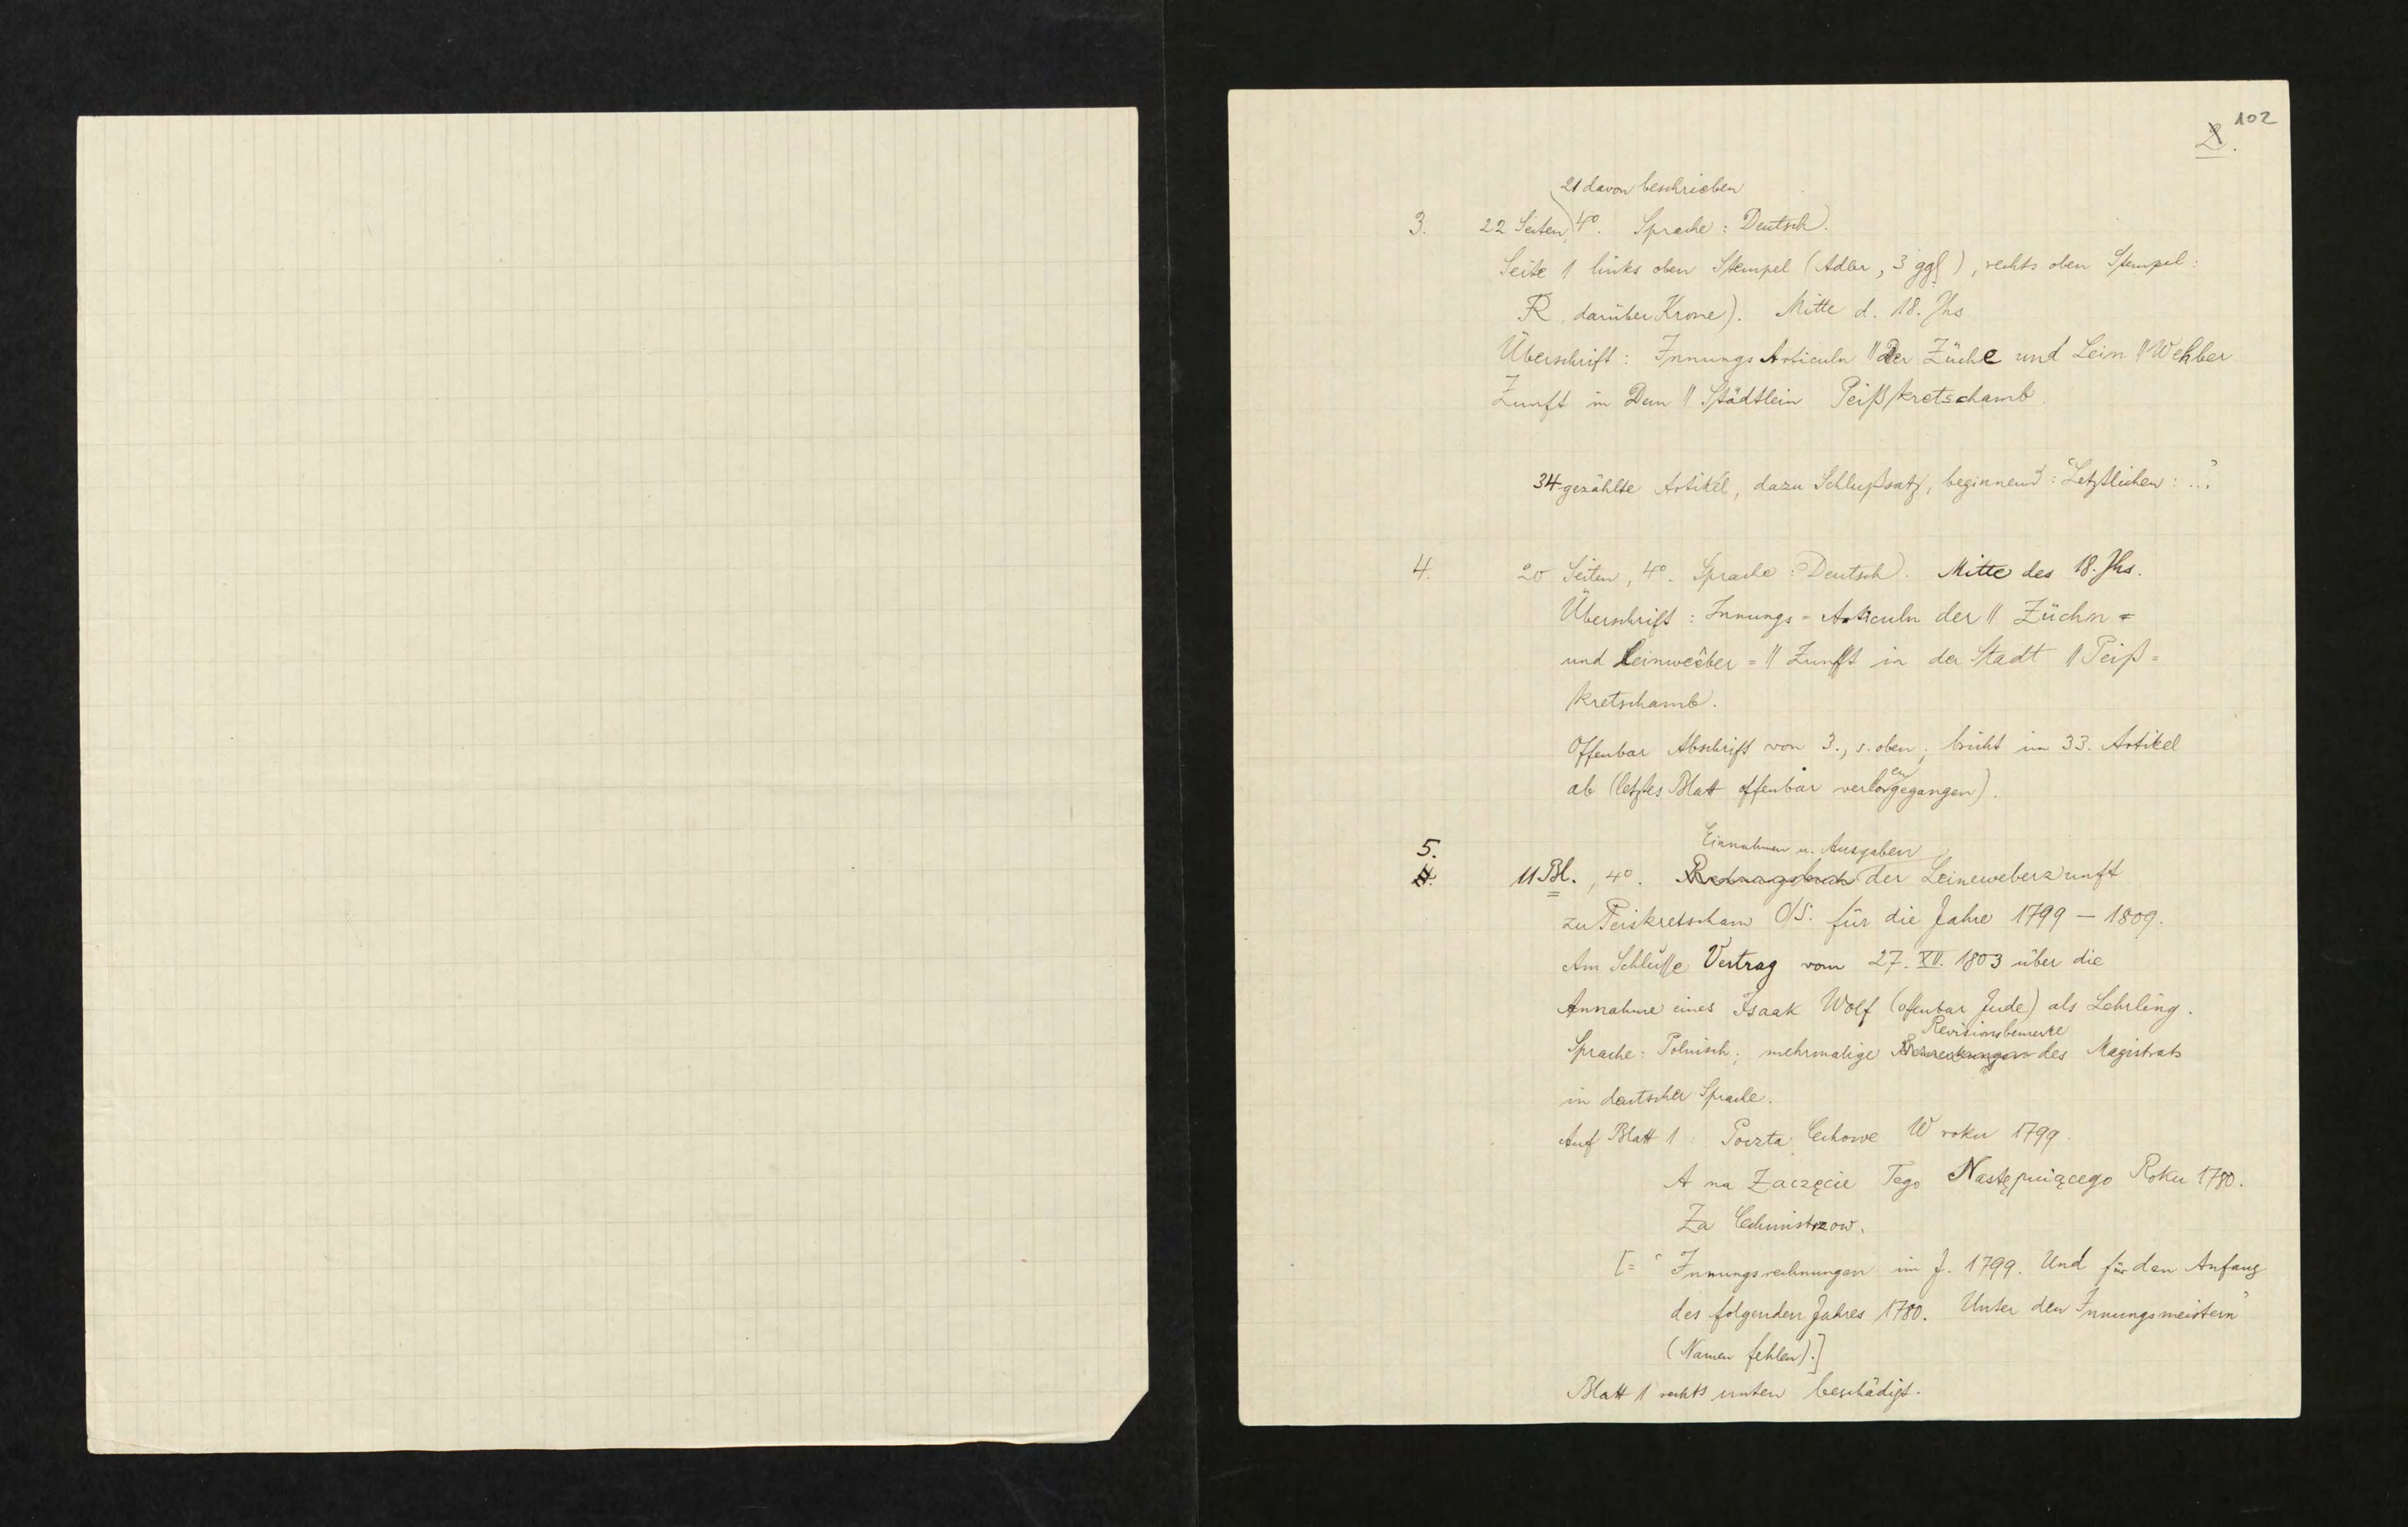 102
2.
21 davon beschrieben
3. 22 Seiten, 4°. Sprache: Deutsch.
Seite 1 links oben Stempel (Adler, 3 ggl), rechts oben Stempel:
R, darüber Krone). Mitte d. 18. Jhs
Überschrift: Innungs Articuln || Der Züche und Lein || Wehber
Zunft in Dem || Städtlein Peißkretschamb.
34 gezählte Artikel, dazu Schlußsatz, beginnend: "Letztlichen: ..."
4. 20 Seiten, 4°. Sprache: Deutsch. Mitte des 18. Jhs.
Überschrift: Innungs-Articuln der || Züchn =
und Leinweber = || Zunfft in der Stadt || Peiß =
kretschamb.
Offenbar Abschrift von 3., s. oben; bricht im 33. Artikel
ab (letztes Blatt offenbar verlorengegangen).
Einnahmen u. Ausgaben
5.
4. 11 Bl., 4°. Rechnungsbuch der Leineweberzunft
zu Peiskretscham O/S. für die Jahre 1799 – 1809.
Am Schlusse Vertrag vom 27. XII. 1803 über die
Annahme eines Isaak Wolf (offenbar Jude) als Lehrling.
Revisionsbemerke
Sprache: Polnisch; mehrmalige des Magistrats
in deutscher Sprache.
Auf Blatt 1: Poczta Cechowe W roku 1799.
A na Zaczęcie Tego Następuiącego Roku 1780.
Za Cechmistrzow.
[= "Innungsrechnungen im J. 1799. Und für den Anfang
des folgenden Jahres 1780. Unter den Innungsmeistern"
(Namen fehlen).]
Blatt 1 rechts unten beschädigt.